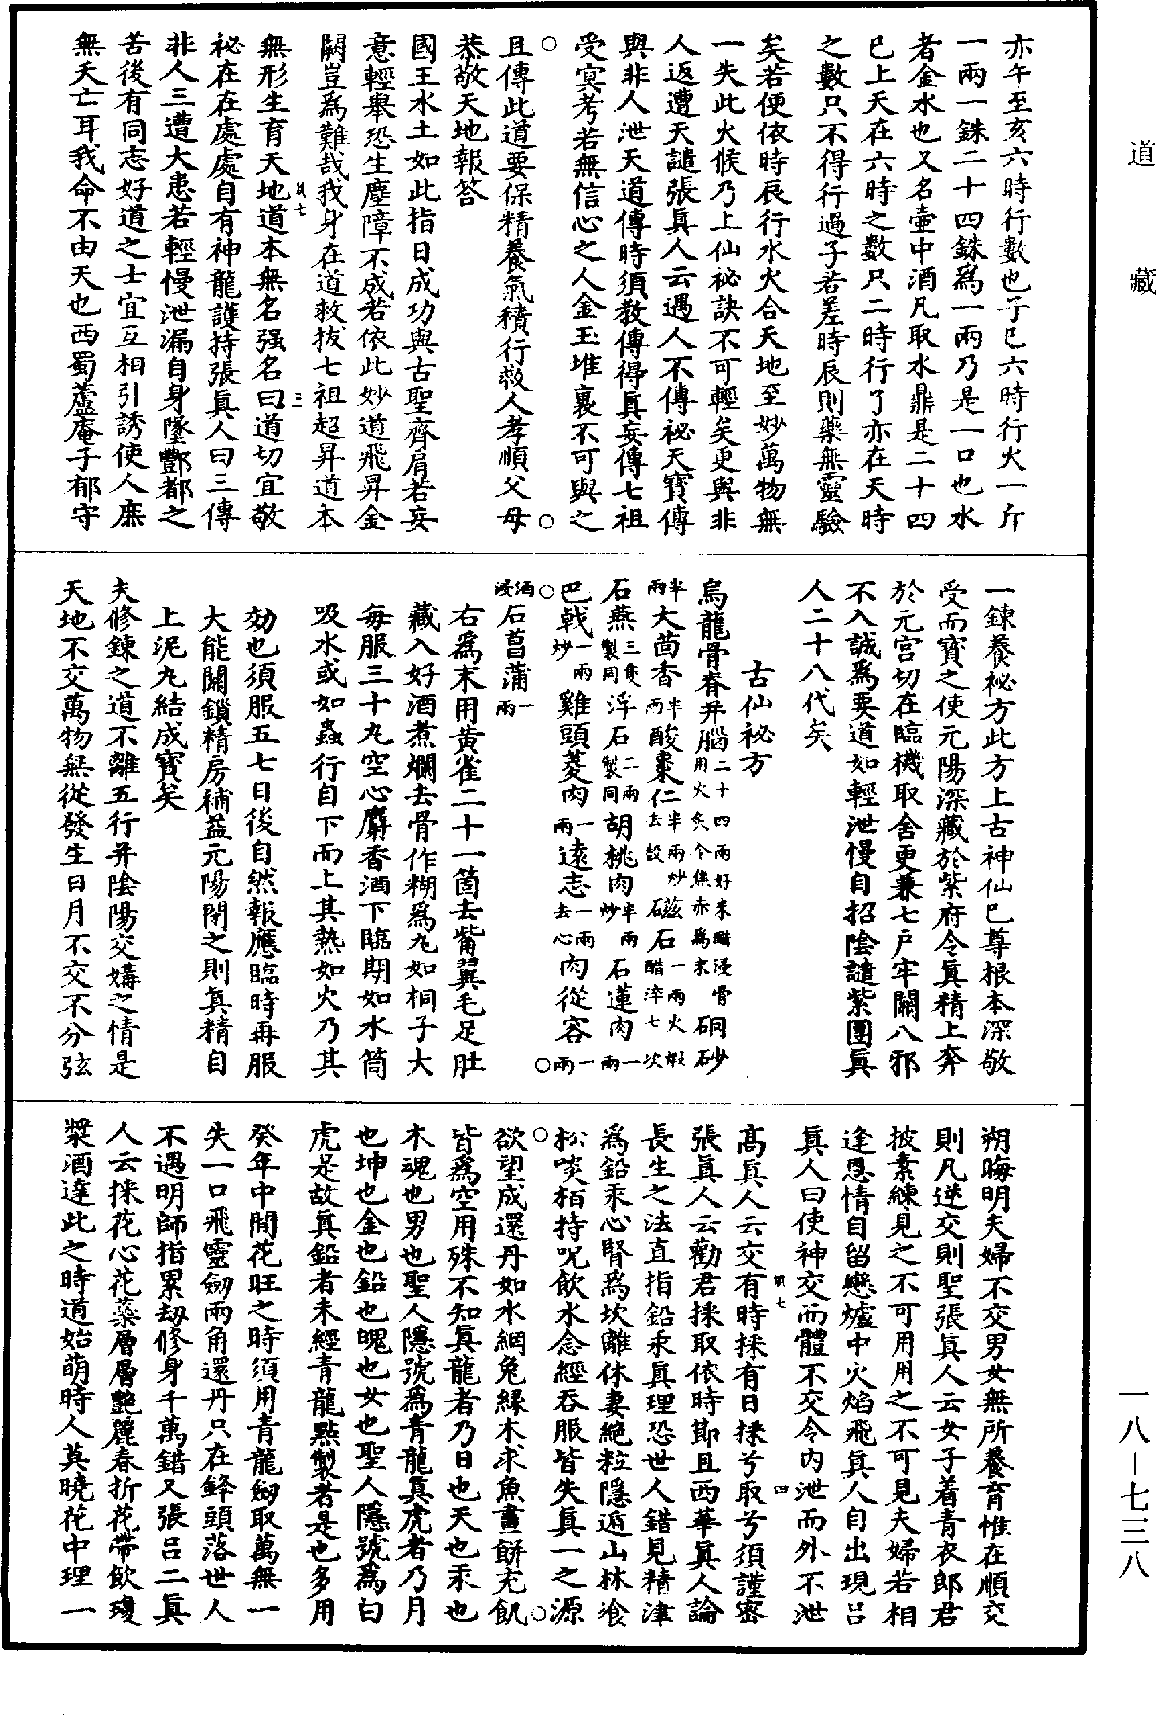 道藏
亦午至亥六時行數也子巳六時行火一斤
一兩一銖二十四銖爲一兩乃是一口也水
者金水也又名壷中酒凡取水鼎是二十四
已上天在六時之數只二時行了亦在天時
之數只不得行過子若差時辰則藥無靈驗
矣若便依時辰行水火合天地至妙萬物無
一失此火候乃上仙祕訣不可輕矣更與非
人返遭天譴張眞人云遇人不傳祕天寶傳
與非人泄天道傳時須教傳得眞妄傳七祖
受冥考若無信心之人金玉堆裏不可與之
且傳此道要保精養氣積行救人孝順父母
恭敬天地報答
國王水土如此指日成功與古聖齊肩若妄
意輕舉恐生塵障不成若依此妙道飛昇金
闕豈爲難哉我身在道救拔七祖超昇道本
無形生育天地道本無名强名曰道切宜敬
祕在在處處自有神龍護持張眞人曰三傳
非人三遭大患若輕慢泄漏自身墜酆都之
苦後有同志好道之士宜互相引誘使人庶
無夭亡耳我命不由天也西蜀蘆庵子郁守
一鍊養祕方此方上古神仙已尊根本深敬
受而寶之使元陽深藏於紫府令眞精上奔
於元宮切在臨機取舍更兼七戸牢關八邪
不入誠爲要道如輕泄慢自招陰譴紫團眞
人二十八代矣
古仙祕方
烏龍骨脊并腦二十四兩好米醋浸骨同炒用火炙令焦赤爲末硇砂石
半兩大茴香半兩酸棗仁二半兩炒去殼磁石一兩火煅醋淬七次
石燕三隻製同浮石二兩製同胡桃肉半兩炒石蓮肉一兩
巴戟一兩炒雞頭菱肉一兩遠志一兩去心肉從容一兩
酒浸石菖蒲一兩
右爲末用黄雀二十一箇去觜翼毛足肚
藏入好酒煮爛去骨作糊爲丸如桐子大
毎服三十丸空心麝香酒下臨期如水筒
吸水或如蟲行自下而上其熱如火乃其
効也須服五七日後自然報應臨時再服
大能關鎖精房補益元陽閉之則眞精自
上泥丸結成寶矣
夫修鍊之道不離五行并陰陽交媾之情是
天地不交萬物無從發生日月不交不分弦
朔晦明夫婦不交男女無所養育惟在順交
則凡逆交則聖張眞人云女子着青衣郎君
披素練見之不可用用之不可見夫婦若相
逢恩情自留戀爐中火焰飛眞人自出現吕
眞人曰使神交而體不交令内泄而外不泄
高眞人云交有時採有日採兮取兮須謹密
張眞人云勸君採取依時節且西華眞人論
長生之法直指鉛汞眞理恐世人錯見精津
爲鉛汞心腎爲坎離休妻絶粒隱遁山林飡
松啖栢持呪飲水念經吞服皆失眞一之源
欲望成還丹如水網兔緣木求魚畫餅充飢
皆爲空用殊不知眞龍者乃日也天也汞也
木魂也男也聖人隱號爲青龍眞虎者乃月
也坤也金也鉛也魄也女也聖人隱號爲白
虎是故眞鉛者未經青龍點製者是也多用
癸年中開花旺之時須用青龍劒取萬無一
失一口飛靈劒兩角還丹只在鋒頭落世人
不遇明師指累劫修身千萬錯又張吕二眞
人云採花心花蘂層層艷麗春折花帶飲瓊
漿酒達此之時道始萌時人莫曉花中理一
一八－七三八